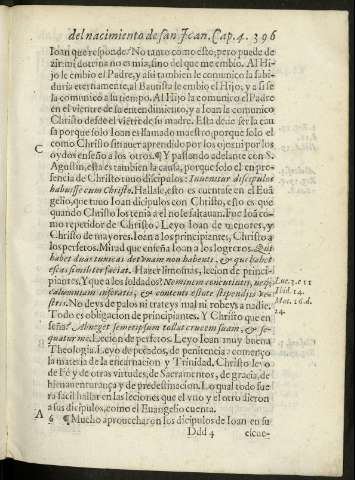 del nacimiento de san Ioan. Cap. 4. 396
Ioan que responde? No tanto como esto; pero puede de
zir: mi dotrina no es mia, sino del que me embio. Al Hi-
jo le embio el Padre, y assi tambien le comunico la sabi-
duria eternamente, al Bautista le embio el Hijo, y assi se
la comunico a su tiempo. Al Hijo la comunico el Padre
en el vientre de su entendimiento, y a Ioan la comunico
Christo desde el viẽtre de su madre. Esta deue ser la cau
sa porque solo Ioan es llamado maestro, porque solo el
como Christo sin auer aprendido por los ojos ni por los
C
oydos enseño a los otros. ¶ Y passando adelante con S.
Agustin, esta es tambien la causa, porque solo el en pre-
sencia de Christo tuuo dicipulos: Inuenitur discipulos
habuisse cum Christo. Hallase, esto es cuentase en el Euã
gelio, que tuuo Ioan dicipulos con Christo, esto es que
quando Christo los tenia a el no le faltauan. Fue Ioã co-
mo repetidor de Christo. Leyo Ioan de menores, y
Christo de mayores. Ioan a los principiantes, Christo a
los perfetos. Mirad que enseña Ioan a los logreros. Qui
habet duas tunicas det vnam non habenti, & qui habet
escas similiter faciat. Hazer limosnas, lecion de princi-
piantes. Y que a los soldados? Neminem concutiatis, neq;
calumniam faciatis, & contenti estote stipendijs ve-
stris. No deys de palos ni trateys mal ni robeys a nadie.
Luc. 3. c. 11
Ibid. 14.
Mat. 16. d.
24.
Todo es obligacion de principiantes. Y Christo que en
seña? Abneget semetipsum tollat crucem suam, & se-
quatur me. Lecion de perfetos. Leyo Ioan muy buena
Theologia. Leyo de pecados, de penitencia: començo
la materia de la encarnacion y Trinidad. Christo leyo
de Fè y de otras virtudes, de Sacramentos, de gracia, de
bienauenturança y de predestinacion. Lo qual todo sue
ra facil hallar en las leciones que el vno y el otro dieron
a sus dicipulos, como el Euangelio cuenta.
A
6 ¶ Mucho aprouecharon los dicipulos de Ioan en su
Ddd 4 escue-